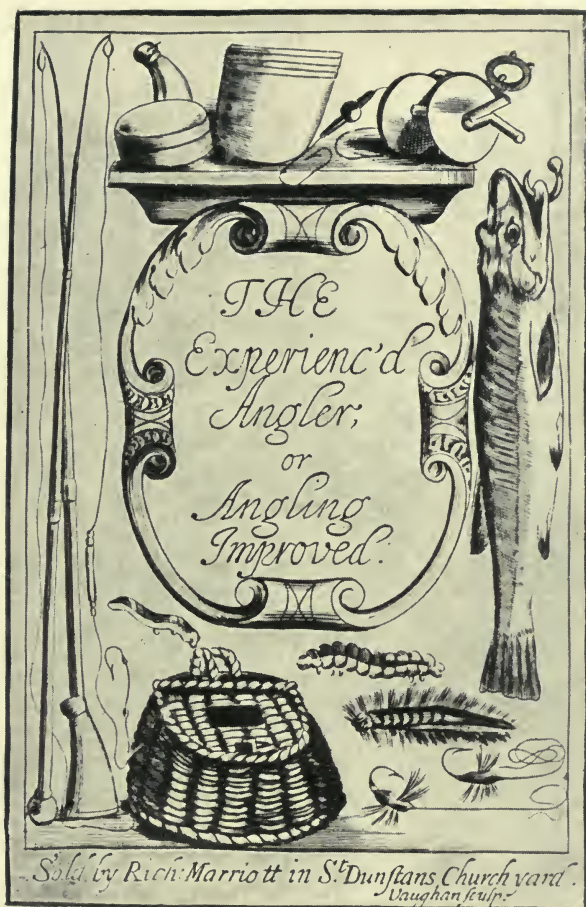 THE
Experienc'd
Angler;
or
Angling
Improved:
Sold by Rich: Marriott in S.t Dunſtans Church yard.
Vaughan ſculp: